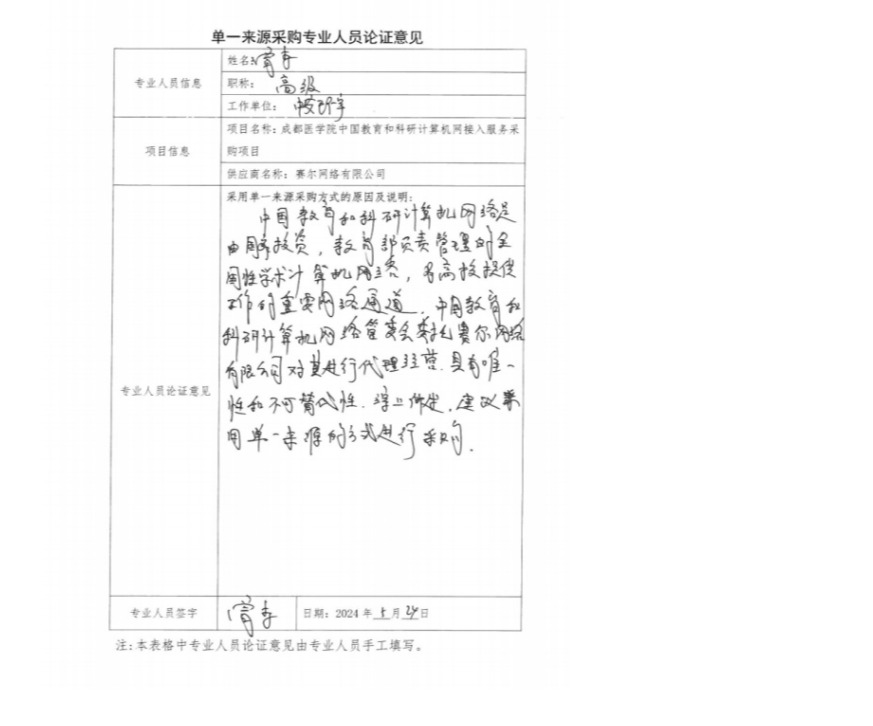 单一来源采购专业人员论证意见
专业人员信息
姓名:
职称: 高级
工作单位:
项目信息
项目名称:成都医学院中国教育和科研计算机网接入服务采
购项目
供应商名称:赛尔网络有限公司
专业人员论证意见
采用单一来源采购方式的原因及说明:
中国教育和科研计算机网络是
由国家投资,教育部负责管理的全
国性学术计算机网络,为高校提供
工作的重要网络通道.中国教育和
科研计算机网络管委会委托赛尔网络
有限公司对其进行代理经营.具有唯一
性和不可替代性.综上所述,建议采
用单一来源的方式进行采购.
专业人员签字
日期:2024年5月24日
注:本表格中专业人员论证意见由专业人员手工填写。